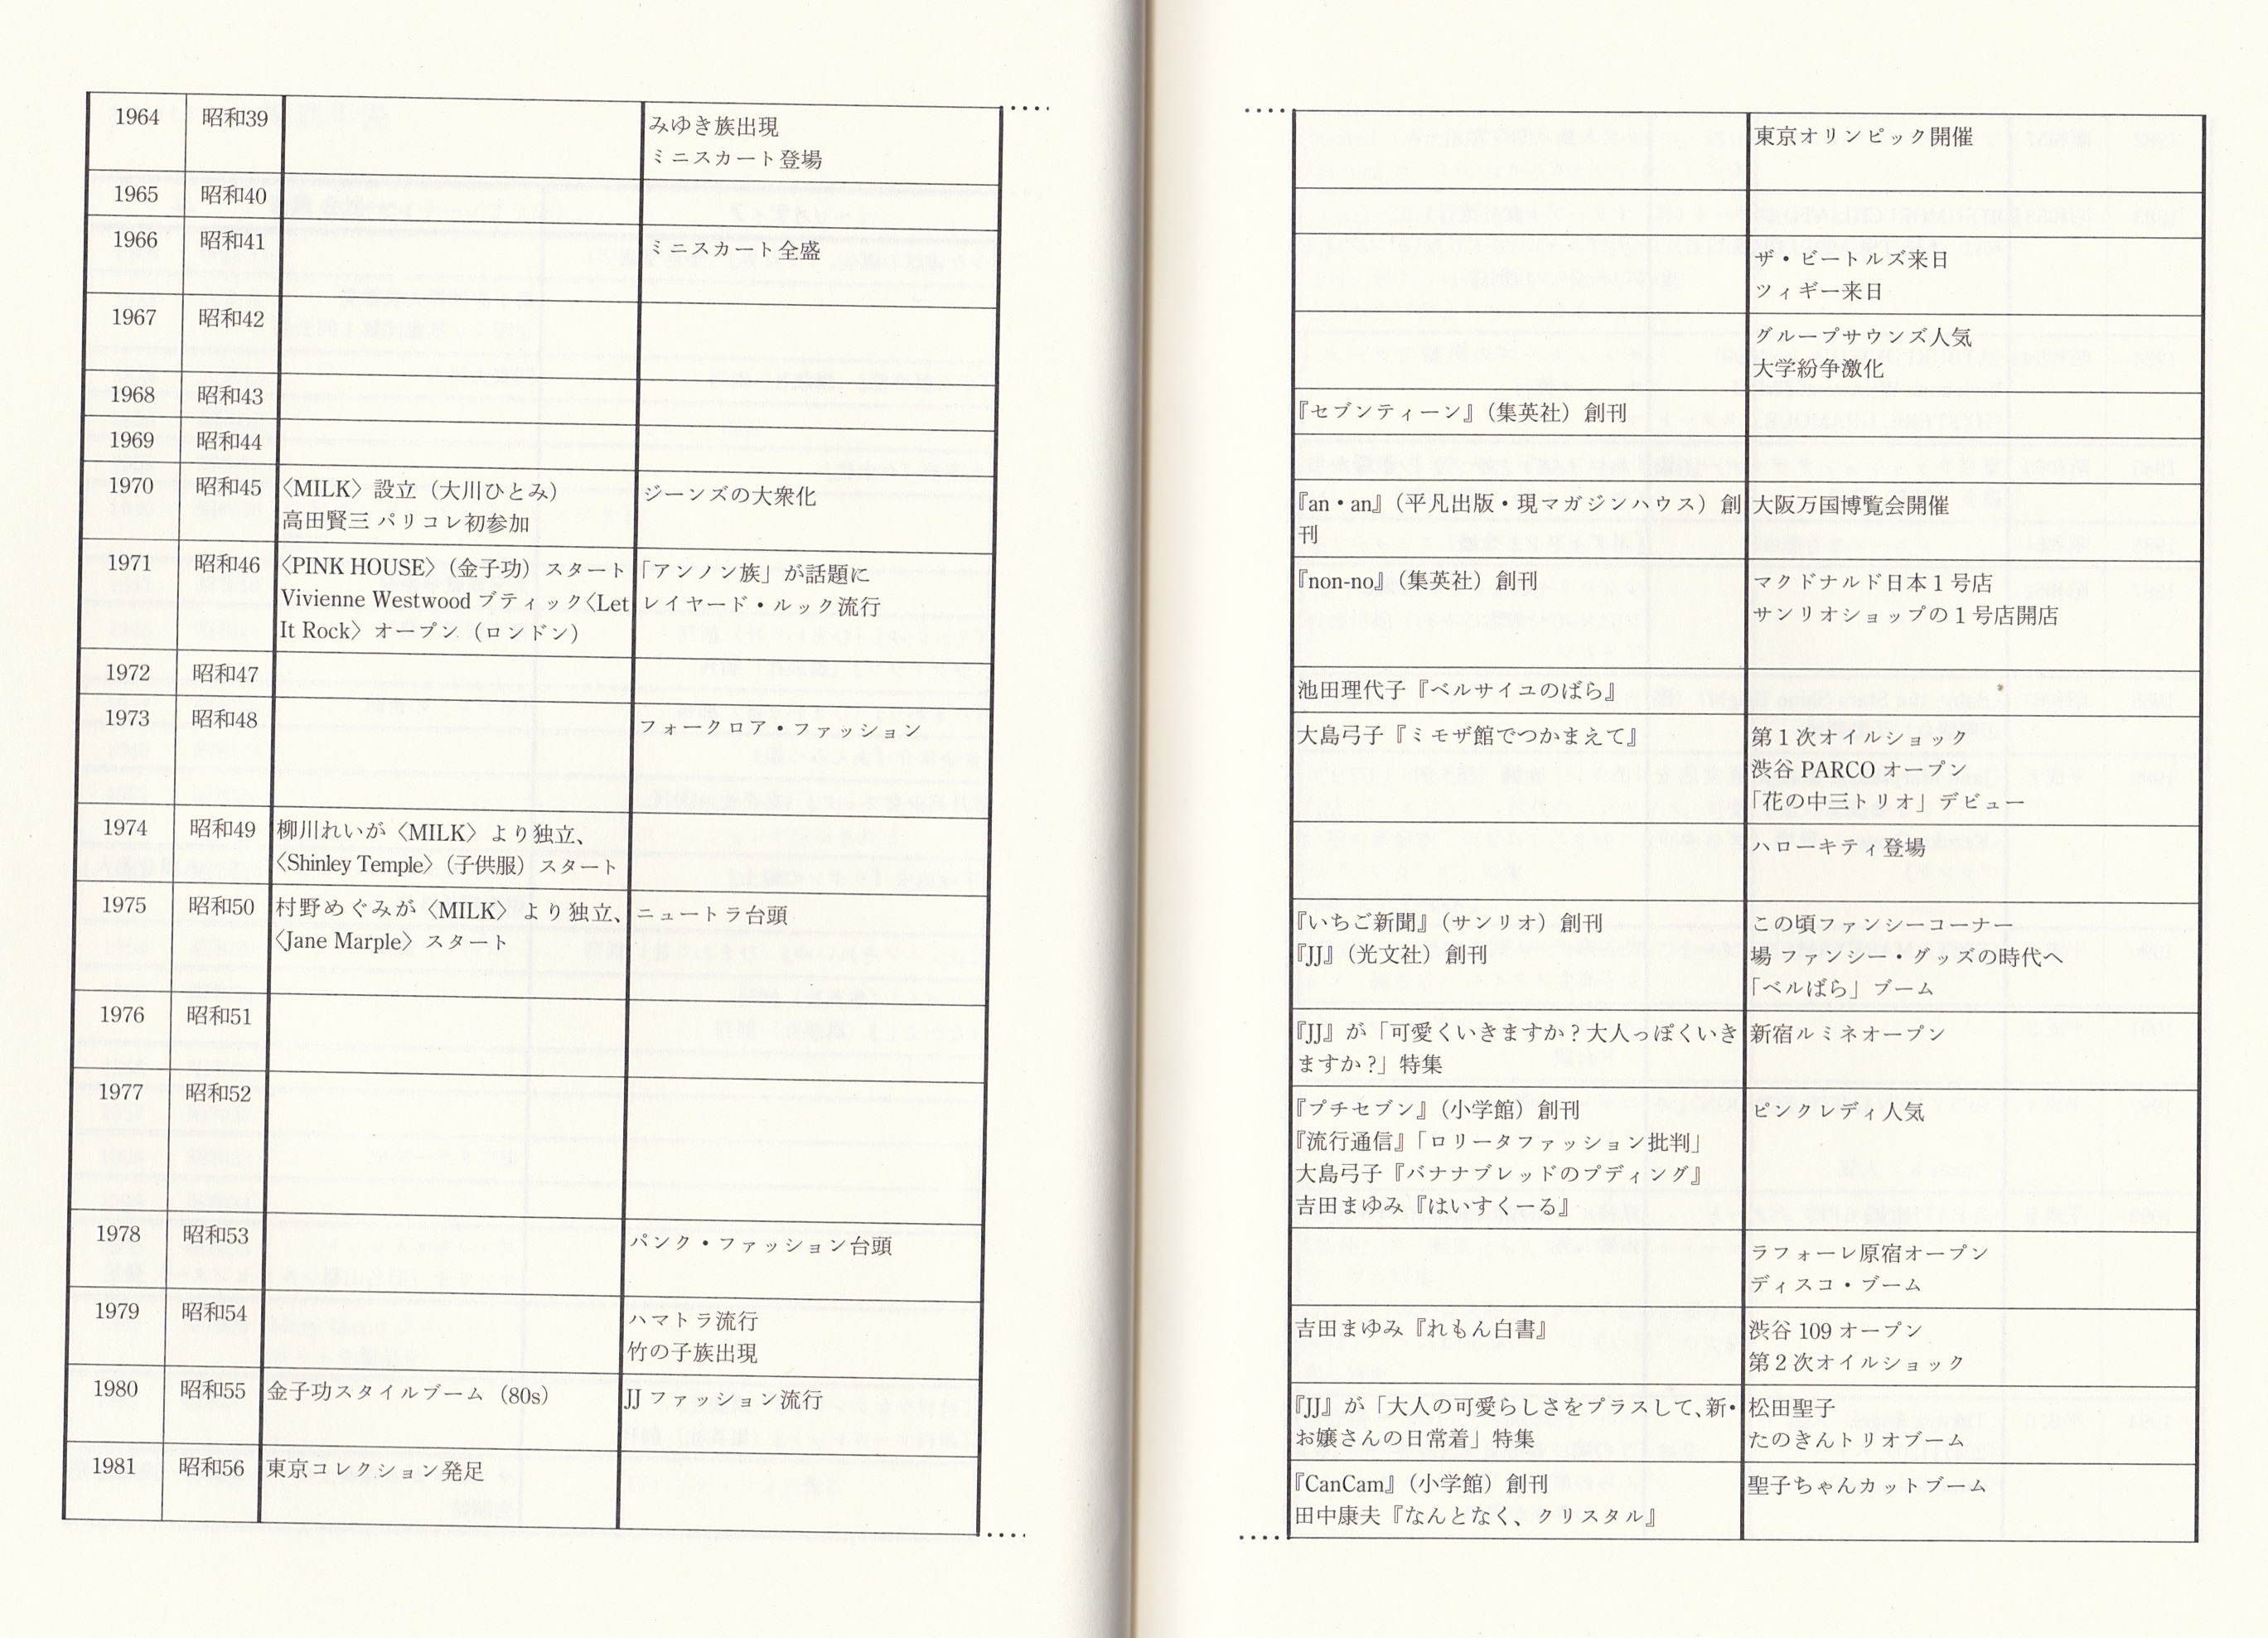 1964
昭和39
みゆき族出現
ミニスカート登場
1965
昭和40
1966
昭和41
ミニスカート全盛
1967
昭和42
1968
昭和43
1969
昭和44
1970
昭和45
〈MILK〉設立（大川ひとみ）
高田賢三 パリコレ初参加
ジーンズの大衆化
1971
昭和46
〈PINK HOUSE〉（金子功）スタート
Vivienne Westwood ブティック〈Let
It Rock〉オープン（ロンドン）
「アンノン族」が話題に
レイヤード・ルック流行
1972
昭和47
1973
昭和48
フォークロア・ファッション
1974
昭和49
柳川れいが〈MILK〉より独立、
〈Shinley Temple〉（子供服）スタート
1975
昭和50
村野めぐみが〈MILK〉より独立、
〈Jane Marple〉スタート
ニュートラ台頭
1976
昭和51
1977
昭和52
1978
昭和53
パンク・ファッション台頭
1979
昭和54
ハマトラ流行
竹の子族出現
1980
昭和55
金子功スタイルブーム（80s）
JJ ファッション流行
1981
昭和56
東京コレクション発足
東京オリンピック開催
ザ・ビートルズ来日
ツィギー来日
グループサウンズ人気
大学紛争激化
『セブンティーン』（集英社）創刊
『an・an』（平凡出版・現マガジンハウス）創
刊
大阪万国博覧会開催
『non-no』（集英社）創刊
マクドナルド日本１号店
サンリオショップの１号店開店
池田理代子『ベルサイユのばら』
大島弓子『ミモザ館でつかまえて』
第１次オイルショック
渋谷 PARCO オープン
「花の中三トリオ」デビュー
ハローキティ登場
『いちご新聞』（サンリオ）創刊
『JJ』（光文社）創刊
この頃ファンシーコーナー
場 ファンシー・グッズの時代へ
「ベルばら」ブーム
『JJ』が「可愛くいきますか？大人っぽくいき
ますか？」特集
新宿ルミネオープン
『プチセブン』（小学館）創刊
『流行通信』「ロリータファッション批判」
大島弓子『バナナブレッドのプディング』
吉田まゆみ『はいすくーる』
ピンクレディ人気
ラフォーレ原宿オープン
ディスコ・ブーム
吉田まゆみ『れもん白書』
渋谷 109 オープン
第２次オイルショック
『JJ』が「大人の可愛らしさをプラスして、新・
お嬢さんの日常着」特集
松田聖子
たのきんトリオブーム
『CanCam』（小学館）創刊
田中康夫『なんとなく、クリスタル』
聖子ちゃんカットブーム